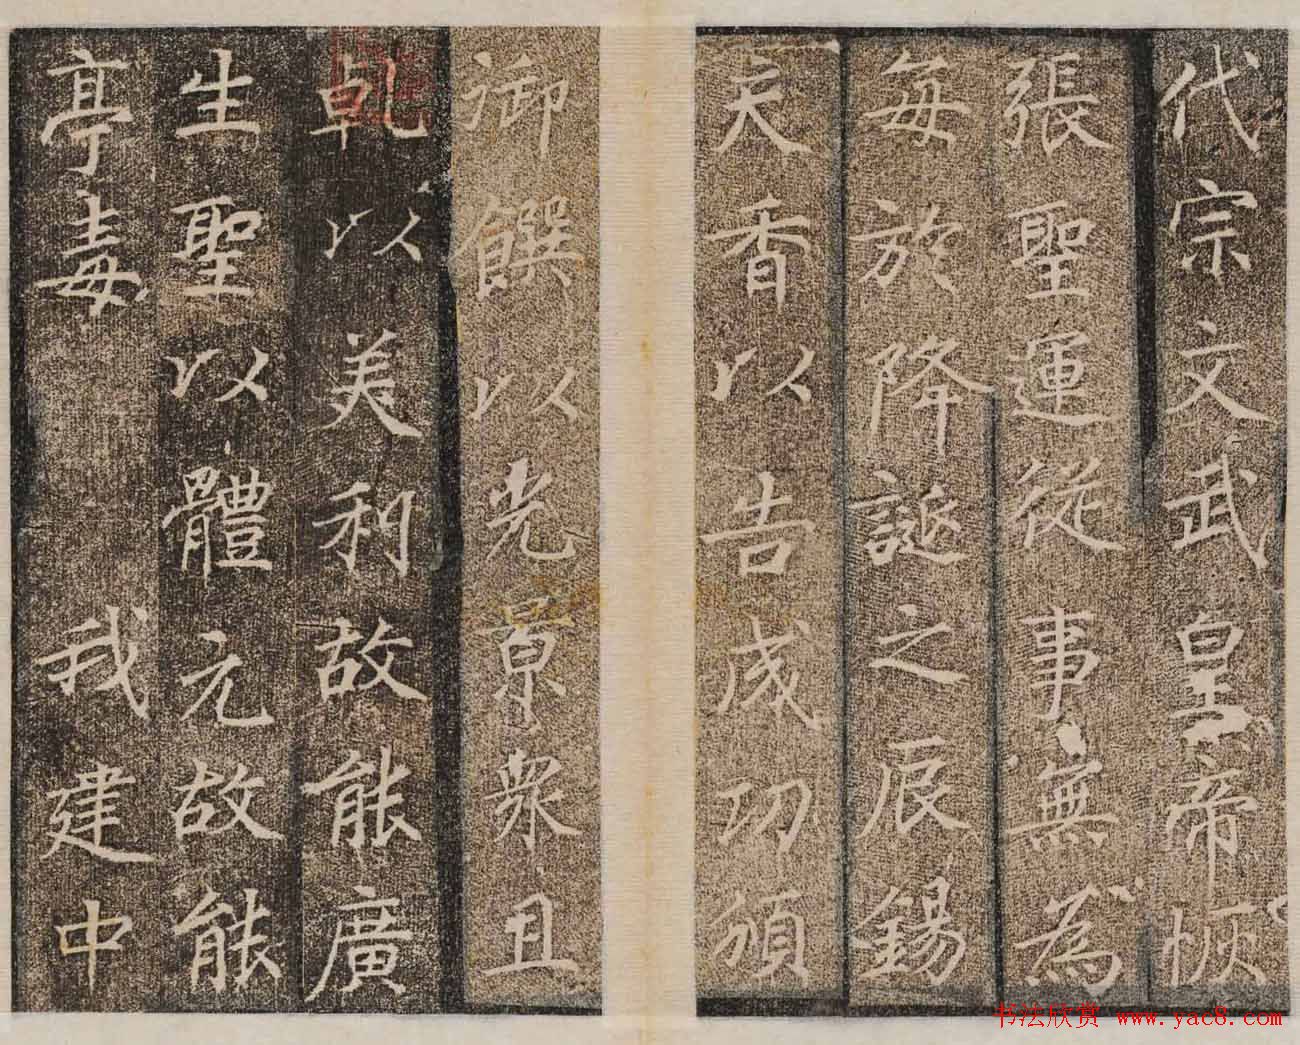 代宗文武皇帝恢
張聖運從事無為
每於降誕之辰錫
天香以告成功頒
御饌以光景衆丑
乹以美利故能廣
生聖以體元故能
亭毒 我建中
书法欣赏 www.yac8.com